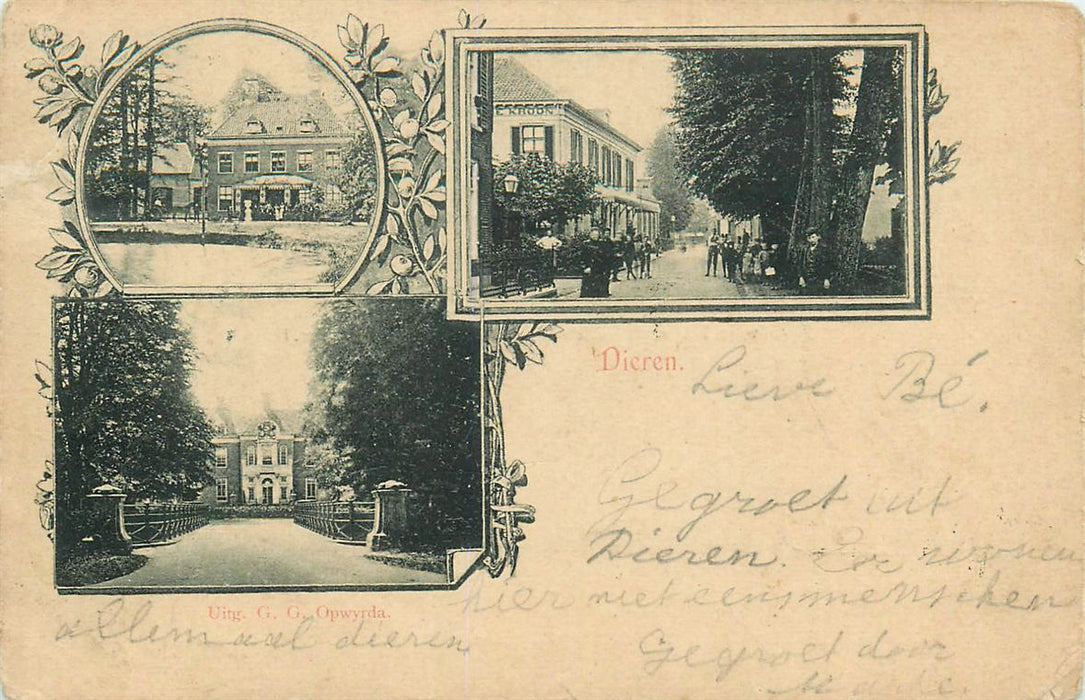 KROON
Dieren.
Lieve Bé,
Gegroet uit
Dieren. Er wonen
hier niet eens menschen
allemaal dieren
Gegroet door
Uitg. G. G. Opwyrda.